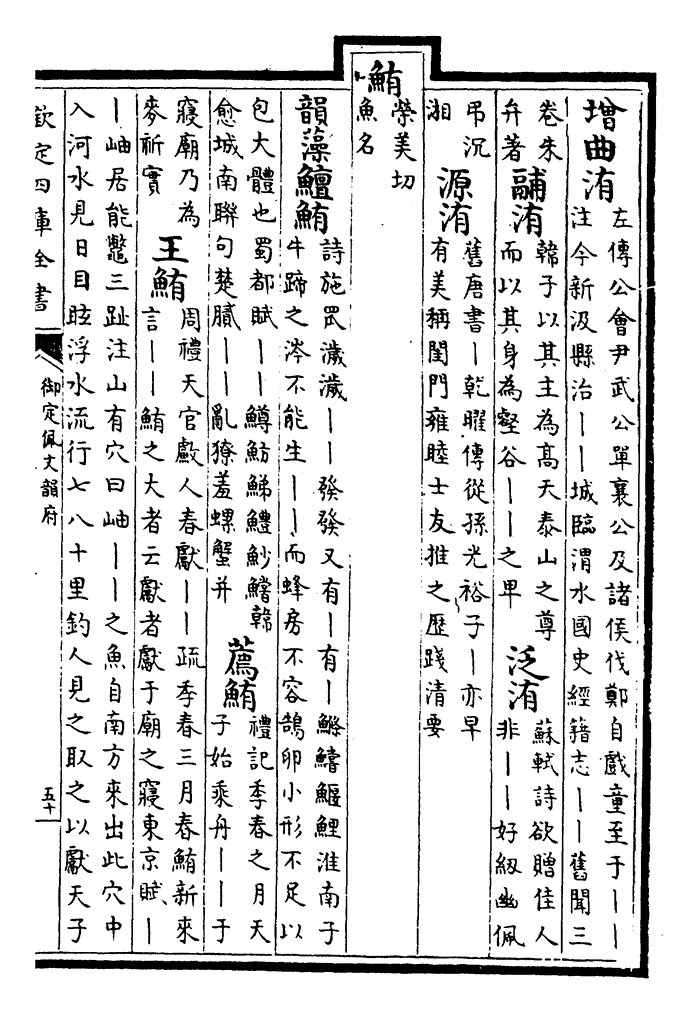 增曲洧
左傳公會尹武公單襄公及諸侯伐鄭自戲童至于丨丨
注今新汲縣治丨丨城臨渭水國史經籍志丨丨舊聞三
卷朱
弁著
鬴洧
韓子以其主為髙天泰山之尊
而以其身為壑谷丨丨之卑
泛洧
蘇軾詩欲贈佳人
非丨丨好紉幽佩
弔沉
湘
源洧
舊唐書丨乾曜傳從孫光裕子丨亦早
有美稱閨門雍睦士友推之歷踐清要
鮪
榮美切
魚名
韻藻鱣鮪
詩施罛濊濊丨丨發發又有丨有丨鰷鱨鰋鯉淮南子
牛蹄之涔不能生丨丨而蜂房不容鵠卵小形不足以
包大體也蜀都賦丨丨鱒魴鮷鱧魦鱨韓
愈城南聯句楚膩丨丨亂獠羞螺蟹并
薦鮪
禮記季春之月天
子始乗舟丨丨于
寢廟乃為
麥祈實
王鮪
周禮天官䱷人春獻丨丨疏季春三月春鮪新來
言丨丨鮪之大者云獻者獻于廟之寢東京賦丨
丨岫居能鼈三趾注山有穴曰岫丨丨之魚自南方來出此穴中
入河水見日目眩浮水流行七八十里釣人見之取之以獻天子
欽定四庫全書
御定佩文韻府
五十